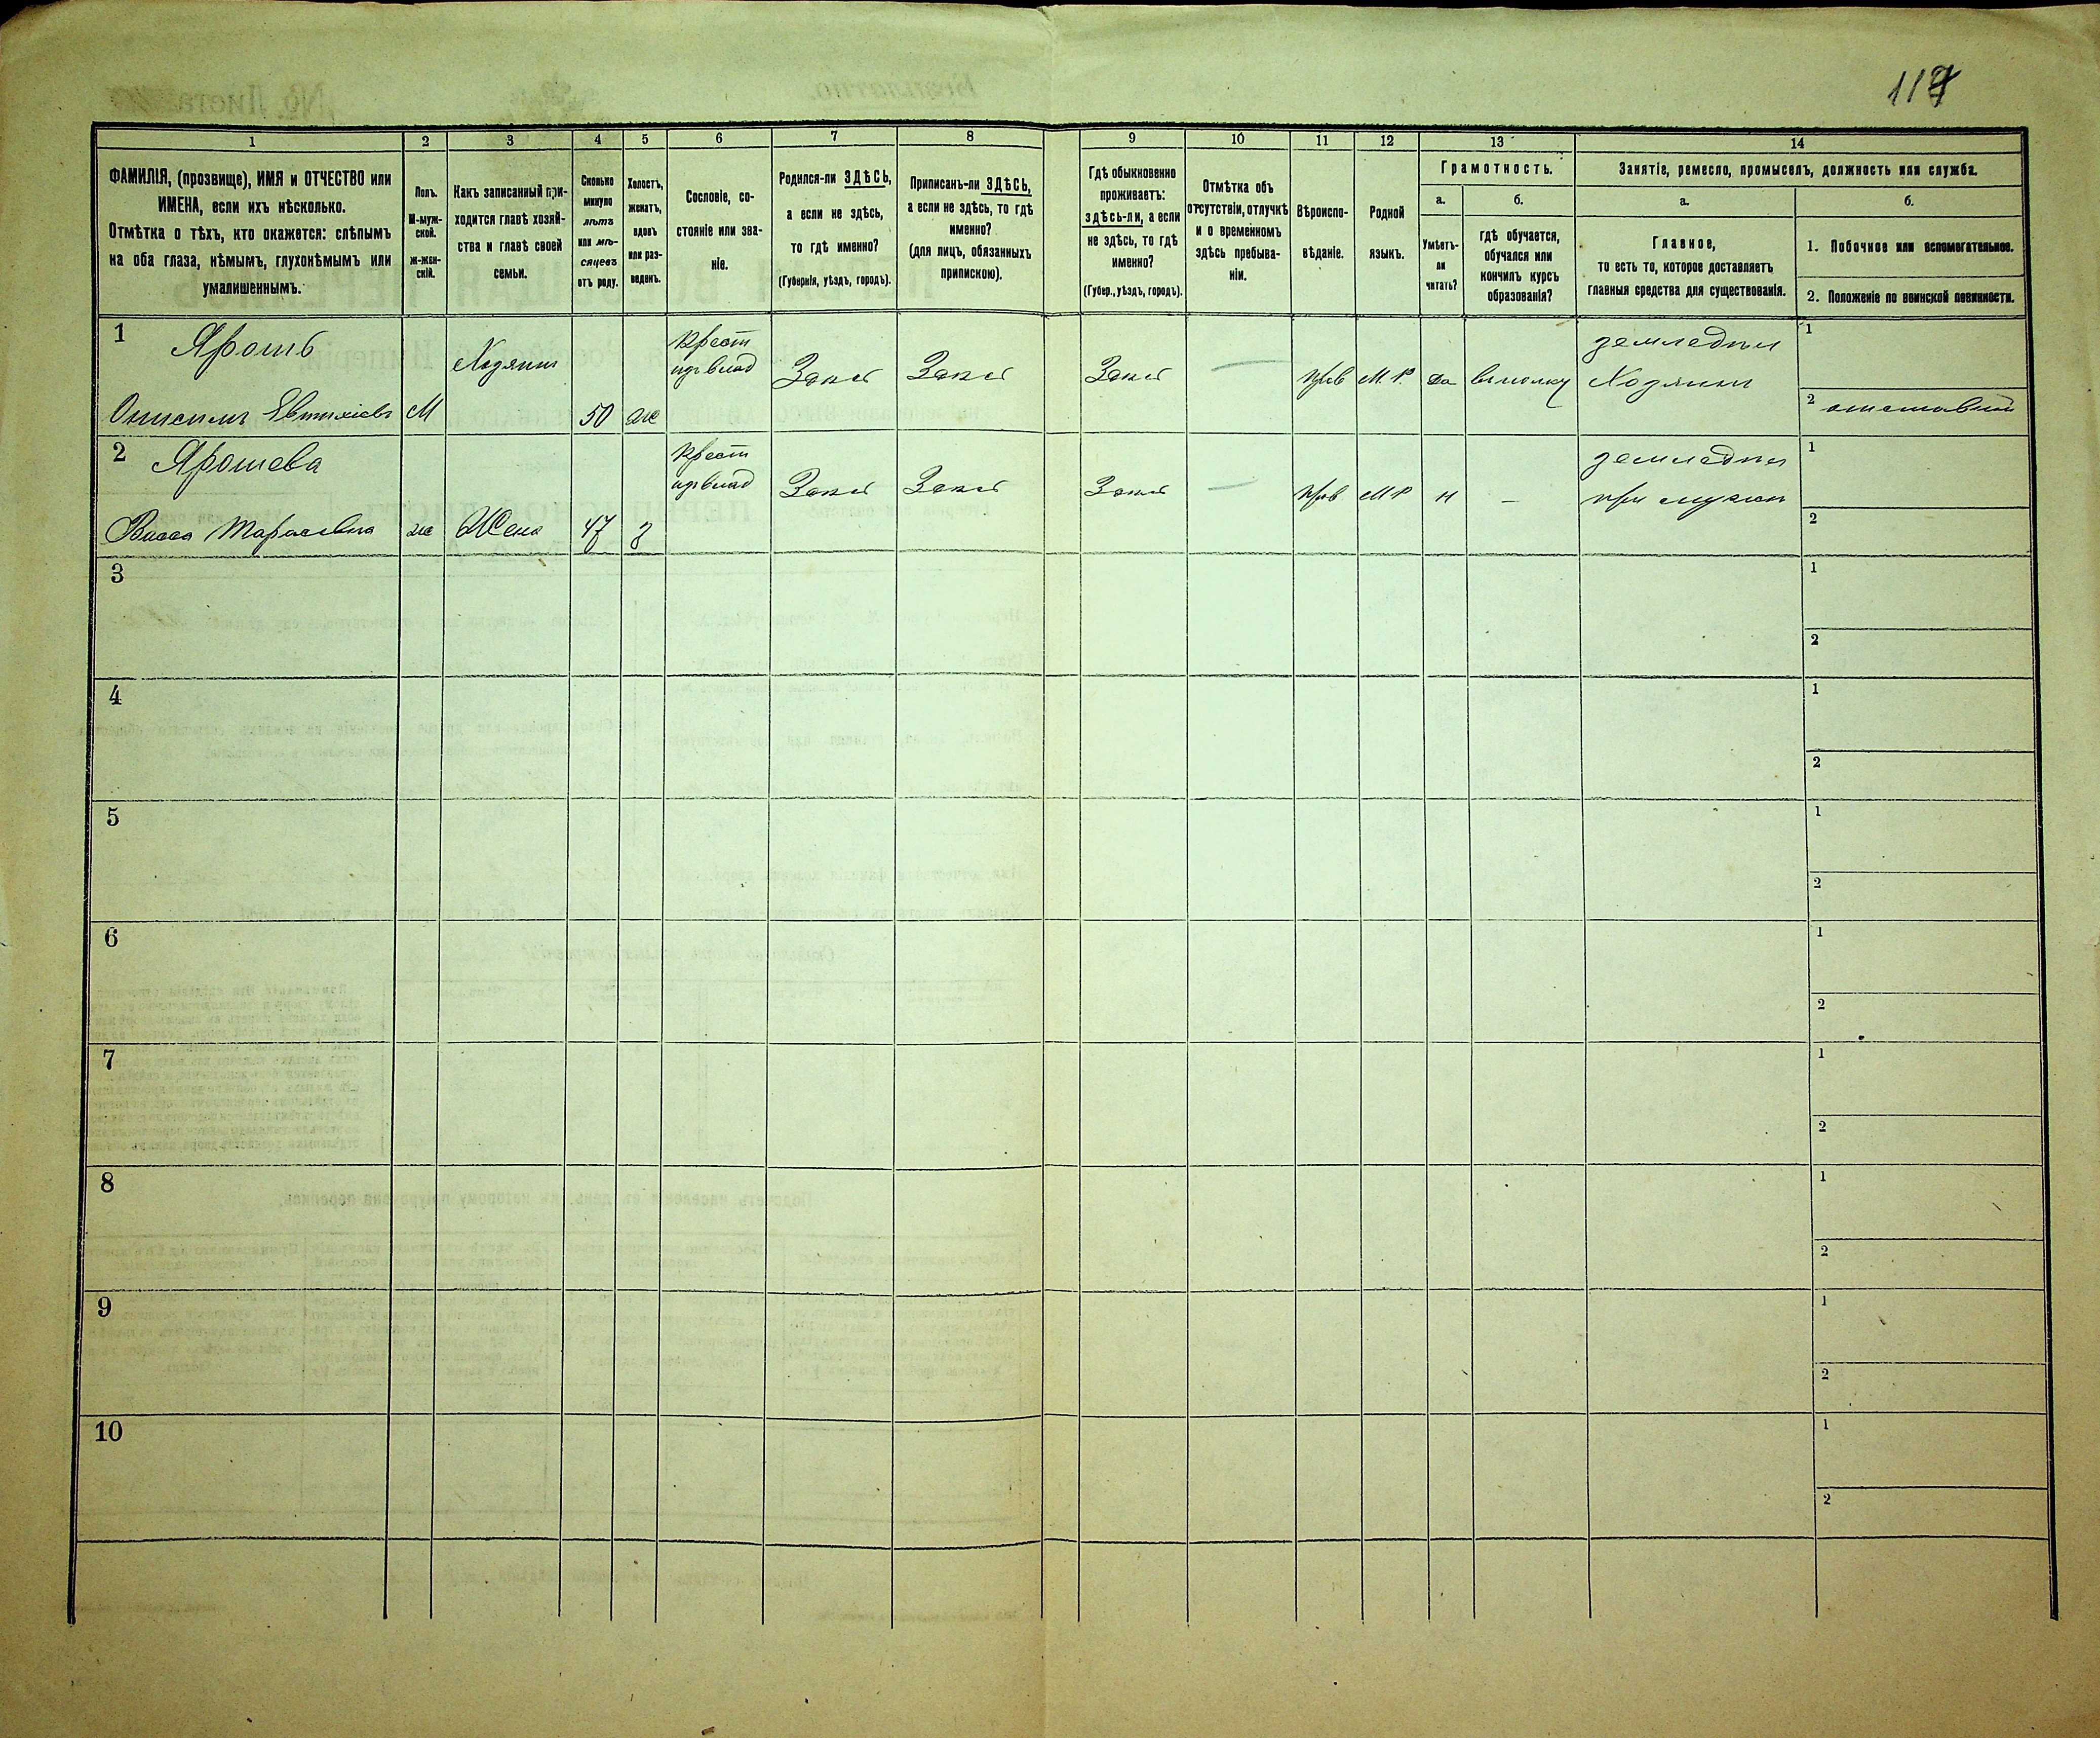 117
1 2 3 4 5 6 7 8 9 10 11 12 13 14
ФАМИЛІЯ, (прозвище), ИМЯ и ОТЧЕСТВО или
ИМЕНА, если ихъ нѣсколько.
Отмѣтка о тѣхъ, кто окажется: слѣпымъ
на оба глаза, нѣмымъ, глухонѣмымъ или
умалишеннымъ.
Полъ.
М-муж-
ской.
ж-жен-
скій.
Какъ записанный при-
ходится главѣ хозяй-
ства и главѣ своей
семьи.
Сколько
минуло
лѣтъ
или мѣ-
сяцевъ
отъ роду.
Холостъ,
женатъ,
вдовъ
или раз-
веденъ.
Сословіе, со-
стояніе или зва-
ніе.
Родился-ли ЗДѢСЬ,
а если не здѣсь,
то гдѣ именно?
(Губернія, уѣздъ, городъ).
Приписанъ-ли ЗДѢСЬ,
а если не здѣсь, то гдѣ
именно?
(для лицъ, обязанныхъ
припискою).
Гдѣ обыкновенно
проживаетъ:
здѣсь-ли, а если
не здѣсь, то гдѣ
именно?
(Губер., уѣздъ, городъ).
Отмѣтка объ
отсутствіи, отлучкѣ
и о временномъ
здѣсь пребыва-
ніи.
Вѣроиспо-
вѣданіе.
Родной
языкъ.
Грамотность.
а.
Умѣетъ-
ли
читать?
б.
гдѣ обучается,
обучался или
кончилъ курсъ
образованія?
Занятіе, ремесло, промыселъ, должность или служба.
а.
Главное,
то есть то, которое доставляетъ
главныя средства для существованія.
б.
1. Побочное или вспомогательное.
2. Положеніе по воинской повинности.
1 Ярошъ
Хозяинъ
Крест
Онисимъ Евтихіевъ М 50 ж
Здѣсь Здѣсь Здѣсь — прав М. Р. да въ полку
земледѣл
Хозяинъ
1
2 отставной
2 Ярошева
Крест
Васса Тарасовна ж Жена 47 з
Здѣсь Здѣсь Здѣсь — прав М Р н —
земледѣл
при мужѣ
1
2
3
1
2
4
1
2
5
1
2
6
1
2
7
1
2
8
1
2
9
1
2
10
1
2